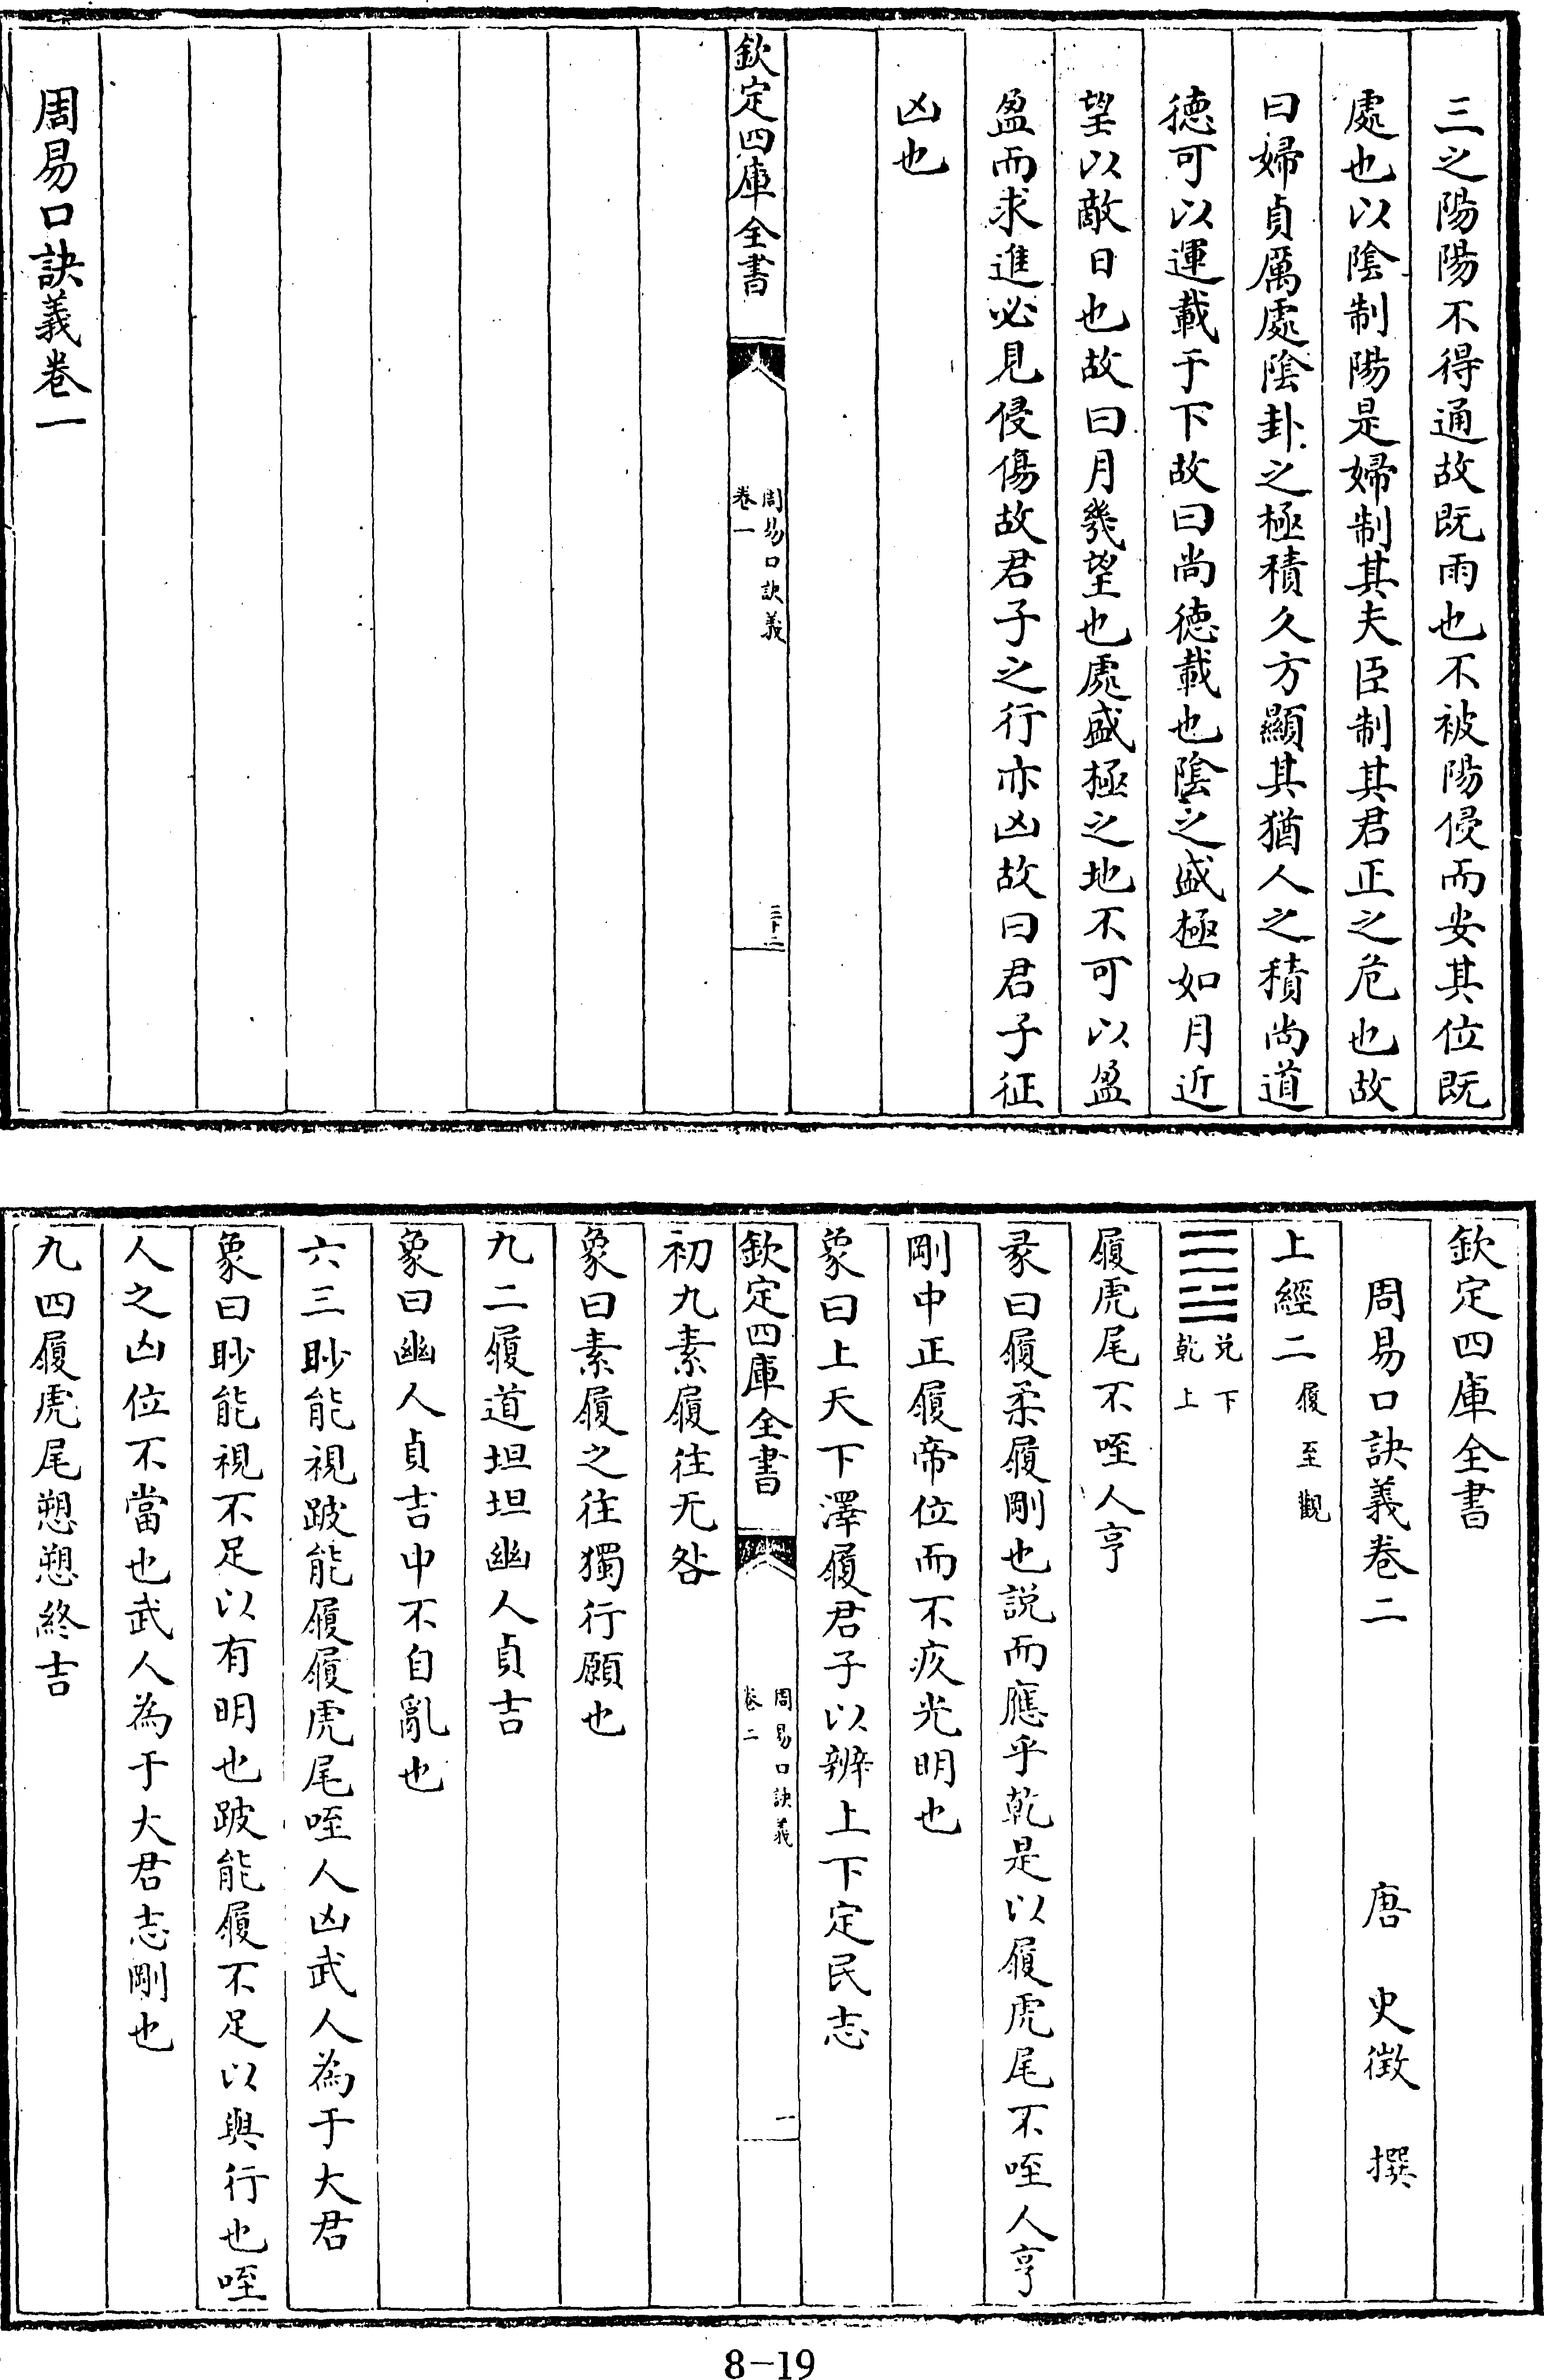 三之陽陽不得通故既雨也不被陽侵而安其位既
處也以陰制陽是婦制其夫臣制其君正之危也故
曰婦貞厲處陰卦之極積久方顯其猶人之積尚道
德可以運載于下故曰尚德載也陰之盛極如月近
望以敵日也故曰月幾望也處盛極之地不可以盈
盈而求進必見侵傷故君子之行亦凶故曰君子征
凶也
欽定四庫全書
周易口訣義
卷一
三十二
周易口訣義卷一
欽定四庫全書
周易口訣義卷二 唐 史徵 撰
上經二 履至觀
䷉ 兌下
乾上
履虎尾不咥人亨
彖曰履柔履剛也説而應乎乾是以履虎尾不咥人亨
剛中正履帝位而不疚光明也
象曰上天下澤履君子以辨上下定民志
欽定四庫全書
周易口訣義
卷二
一
初九素履往无咎
象曰素履之往獨行願也
九二履道坦坦幽人貞吉
象曰幽人貞吉中不自亂也
六三眇能視跛能履履虎尾咥人凶武人為于大君
象曰眇能視不足以有明也跛能履不足以與行也咥
人之凶位不當也武人為于大君志剛也
九四履虎尾愬愬終吉
8-19